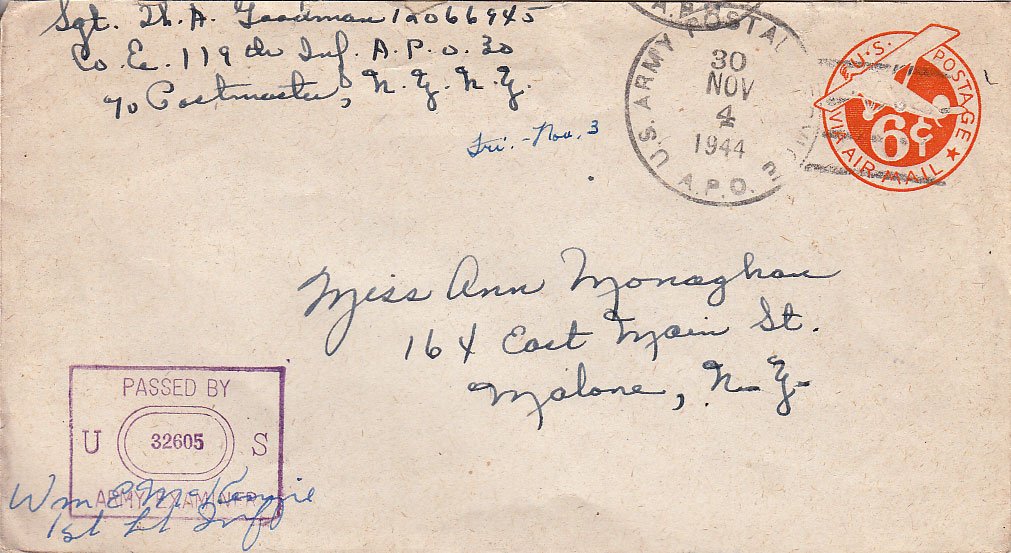 Sgt. Th. A. Goodman 12066945
Co. E. 119th Inf. A.P.O. 30
c/o Postmaster, N.Y. N.Y.
Fri. - Nov. 3
A.P.O.
U.S. ARMY POSTAL
30
NOV
4
1944
A.P.O.
U.S. POSTAGE
6¢
VIA AIR MAIL
Miss Ann Monaghan
164 East Main St.
Malone, N.Y.
PASSED BY
U 32605 S
ARMY EXAMINER
Wm E McKenzie
1st Lt Inf